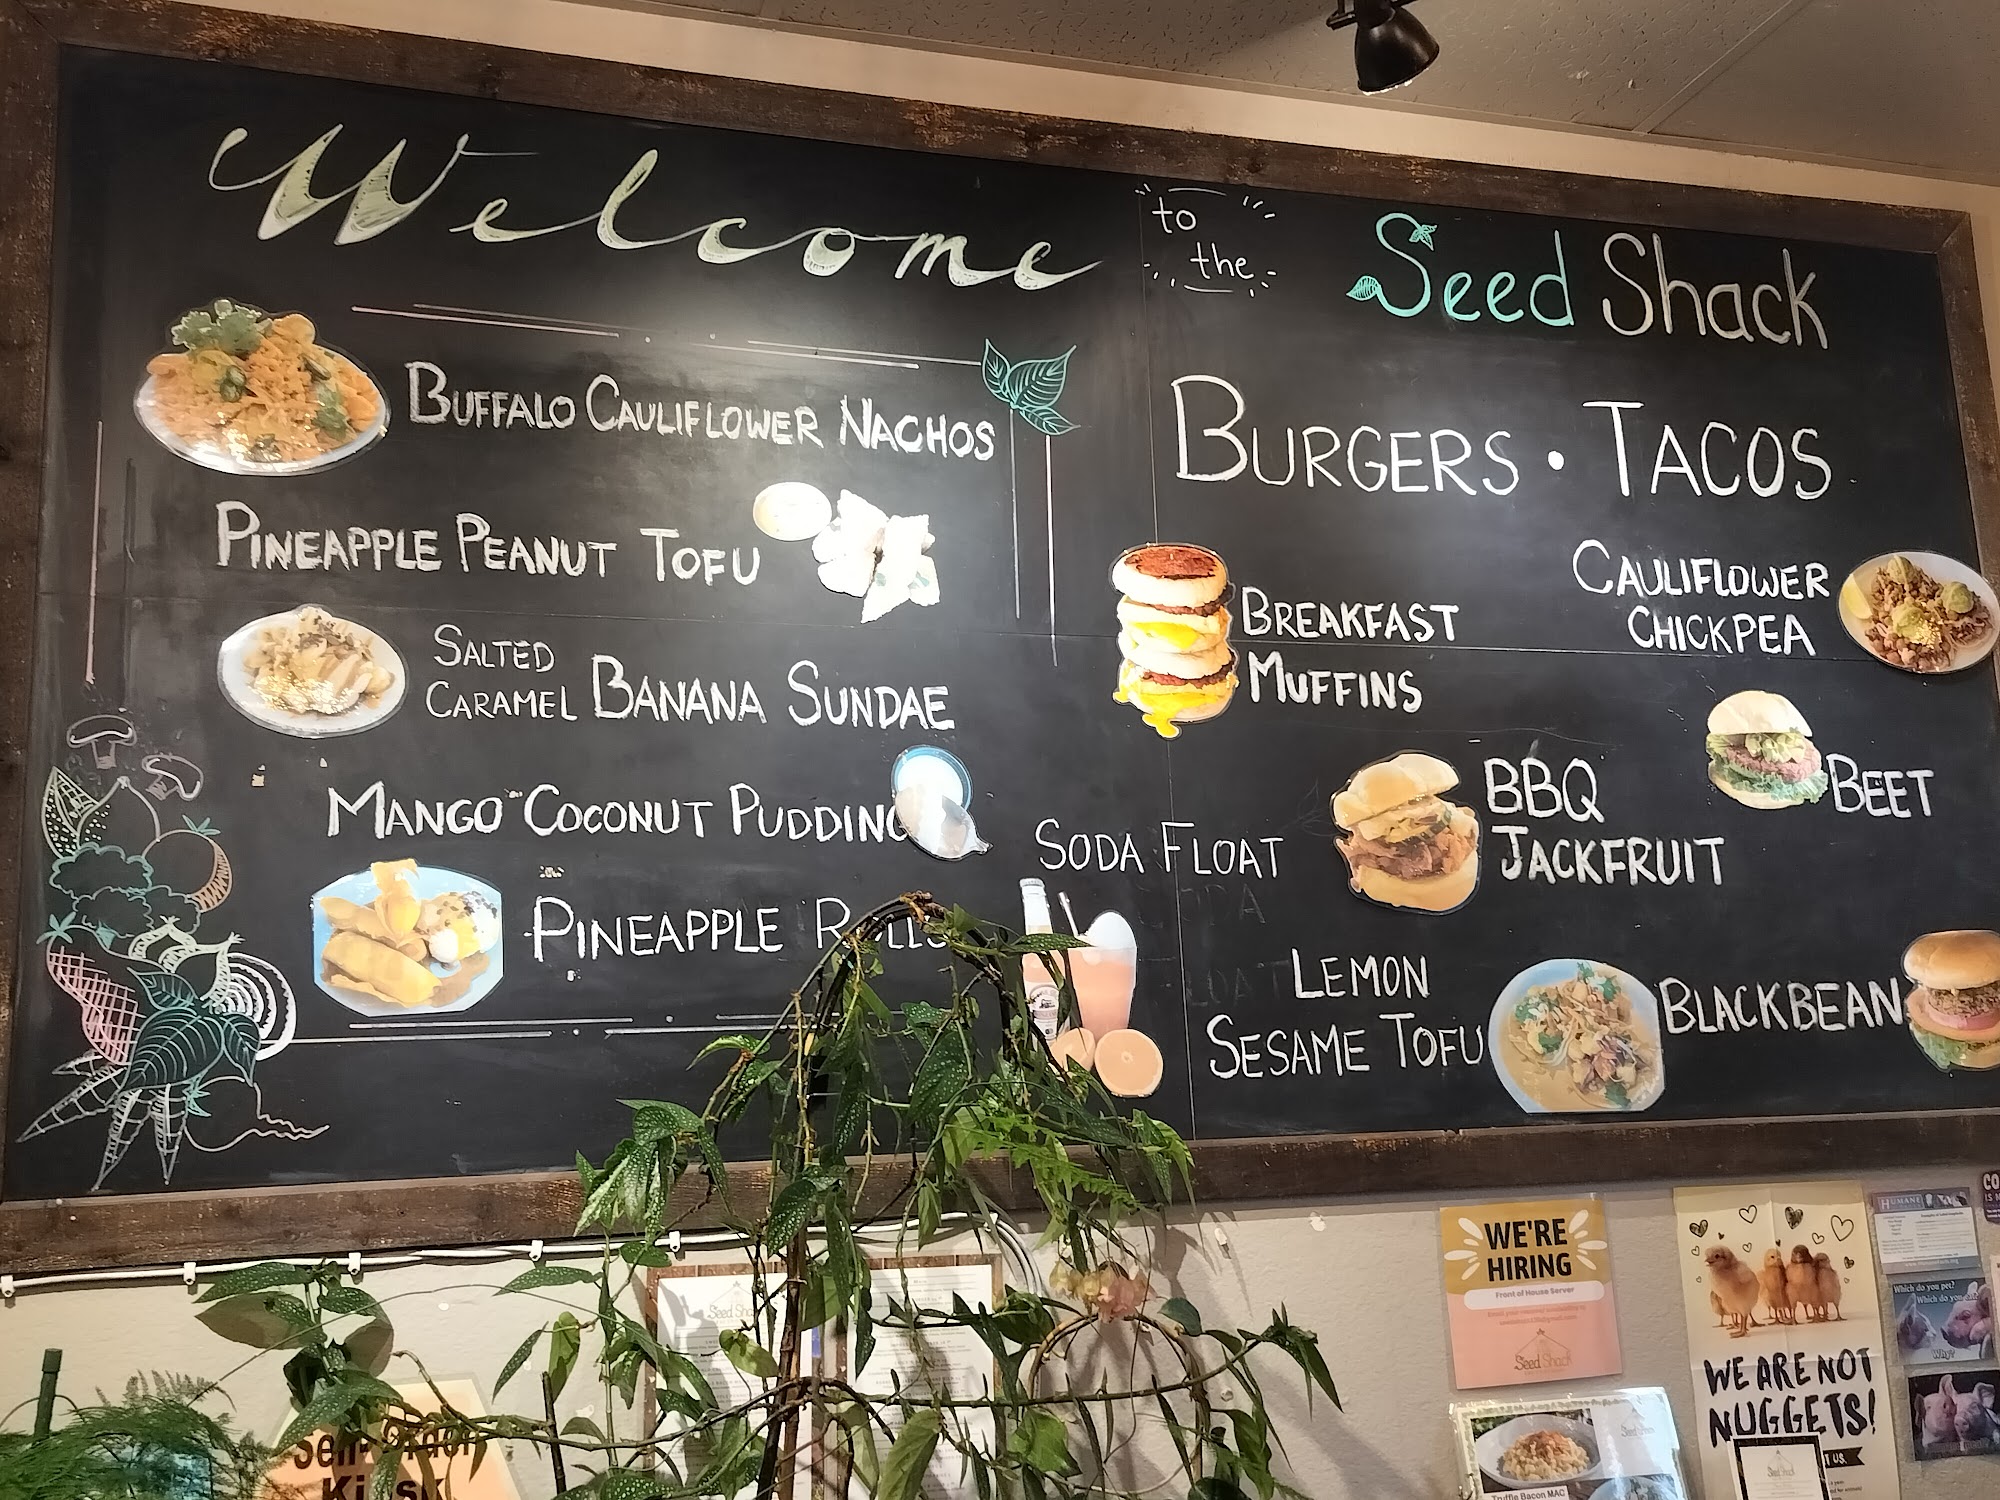 Welcome
to
the
Seed Shack
BUFFALO CAULIFLOWER NACHOS
PINEAPPLE PEANUT TOFU
SALTED
CARAMEL BANANA SUNDAE
MANGO COCONUT PUDDING
PINEAPPLE ROLLS
SODA FLOAT
BURGERS • TACOS
BREAKFAST
MUFFINS
CAULIFLOWER
CHICKPEA
BBQ
JACKFRUIT
BEET
LEMON
SESAME TOFU
BLACKBEAN
WE'RE
HIRING
Front of House Server
Seed Shack
WE ARE NOT
NUGGETS!
T US.
HUMANE
Which do you pet?
Which do you eat?
Why?
CO
IS
Seed Shack
Self-Order
Kiosk
Seed Shack
Truffle Bacon MAC
Seed Shack